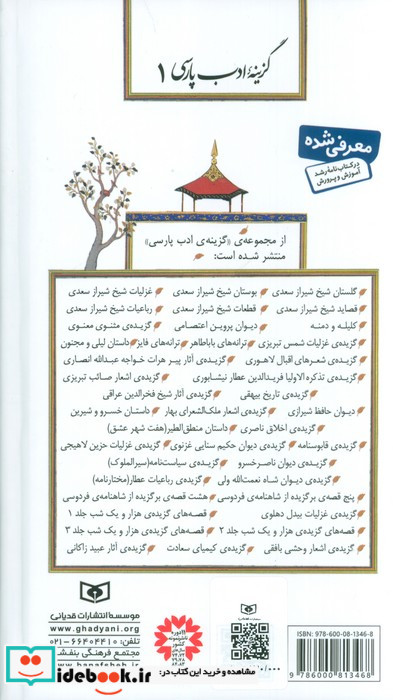 گزینهٔ ادب پارسی ۱
معرفی شده
در کتاب نامهٔ رشد
آموزش و پرورش
از مجموعه‌ی «گزینه‌ی ادب پارسی»
منتشر شده است:
گلستان شیخ شیراز سعدی بوستان شیخ شیراز سعدی غزلیات شیخ شیراز سعدی
قصاید شیخ شیراز سعدی قطعات شیخ شیراز سعدی رباعیات شیخ شیراز سعدی
کلیله و دمنه دیوان پروین اعتصامی گزیده‌ی مثنوی معنوی
گزیده‌ی غزلیات شمس تبریزی ترانه‌های باباطاهر ترانه‌های فایز داستان لیلی و مجنون
گزیده‌ی شعرهای اقبال لاهوری گزیده‌ی آثار پیر هرات خواجه عبدالله انصاری
گزیده‌ی تذکره الاولیا فریدالدین عطار نیشابوری گزیده‌ی اشعار صائب تبریزی
گزیده‌ی تاریخ بیهقی گزیده‌ی آثار شیخ فخرالدین عراقی
دیوان حافظ شیرازی گزیده‌ی اشعار ملک‌الشعرای بهار داستان خسرو و شیرین
گزیده‌ی اخلاق ناصری داستان منطق‌الطیر(هفت شهر عشق)
گزیده‌ی قابوسنامه گزیده‌ی دیوان حکیم سنایی غزنوی گزیده‌ی غزلیات حزین لاهیجی
گزیده‌ی دیوان ناصرخسرو گزیده‌ی سیاست‌نامه(سیرالملوک)
گزیده‌ی دیوان شاه نعمت‌الله ولی گزیده‌ی رباعیات عطار(مختارنامه)
پنج قصه‌ی برگزیده از شاهنامه‌ی فردوسی هشت قصه‌ی برگزیده از شاهنامه‌ی فردوسی
گزیده‌ی غزلیات بیدل دهلوی قصه‌های گزیده‌ی هزار و یک شب جلد ۱
قصه‌های گزیده‌ی هزار و یک شب جلد ۲ قصه‌های گزیده‌ی هزار و یک شب جلد ۳
گزیده‌ی اشعار وحشی بافقی گزیده‌ی کیمیای سعادت گزیده‌ی آثار عبید زاکانی
موسسه انتشارات قدیانی
www.ghadyani.org
تلفن: ۶۶۴۰۴۴۱۰-۰۲۱
مجتمع فرهنگی بنفشه
ISBN: 978-600-08-1346-8
9 786000 813468
مشاهده و خرید این کتاب در:
iidebook.ir